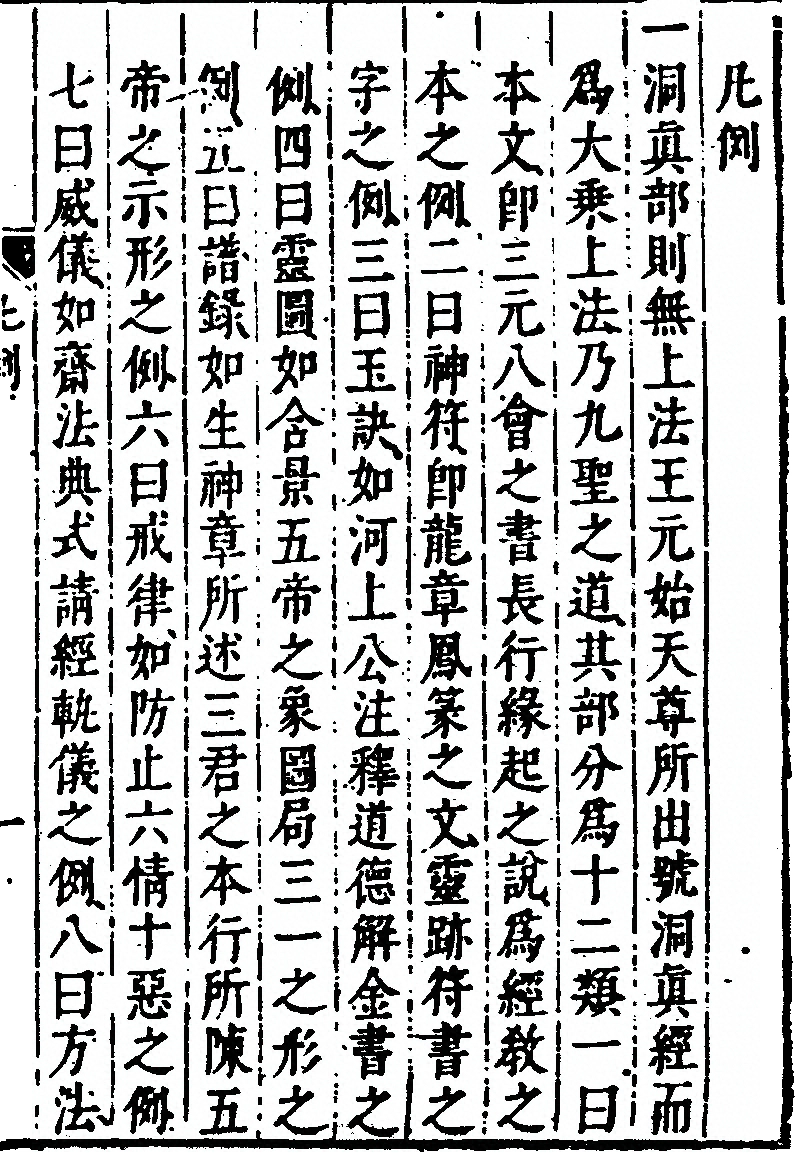 凡例
一洞眞部則無上法王元始天尊所出號洞眞經而
爲大乘上法乃九聖之道其部分爲十二類一曰
本文卽三元八會之書長行緣起之說爲經教之
本之例二曰神符卽龍章鳳篆之文靈跡符書之
字之例三曰玉訣如河上公注釋道德解金書之
例四曰靈圖如含景五帝之象圖局三一之形之
例五曰譜錄如生神章所述三君之本行所陳五
帝之示形之例六曰戒律如防止六情十惡之例
七曰威儀如齋法典式請經軌儀之例八曰方法